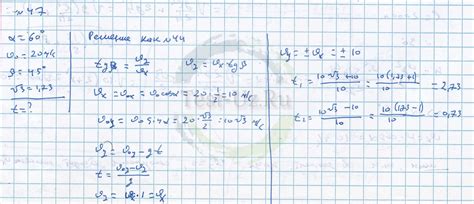 №47
α=60°
υ₀=20 м/с
β=45°
√3=1,73
t=?
Решение как №44
tgβ = υy/υx    υy = υx tgβ
υx = υ₀x = υ₀cosα = 20·1/2 = 10 м/с
υ₀y = υ₀ sinα = 20·√3/2 = 10√3 м/с
υy = υ₀y - gt
t = (υ₀y - υy)/g
υy = υx·1 = υx
υy = ±υx = ±10
t₁ = (10√3+10)/10 = 10(1,73+1)/10 = 2,73
t₁ = (10√3-10)/10 = 10(1,73-1)/10 = 0,73